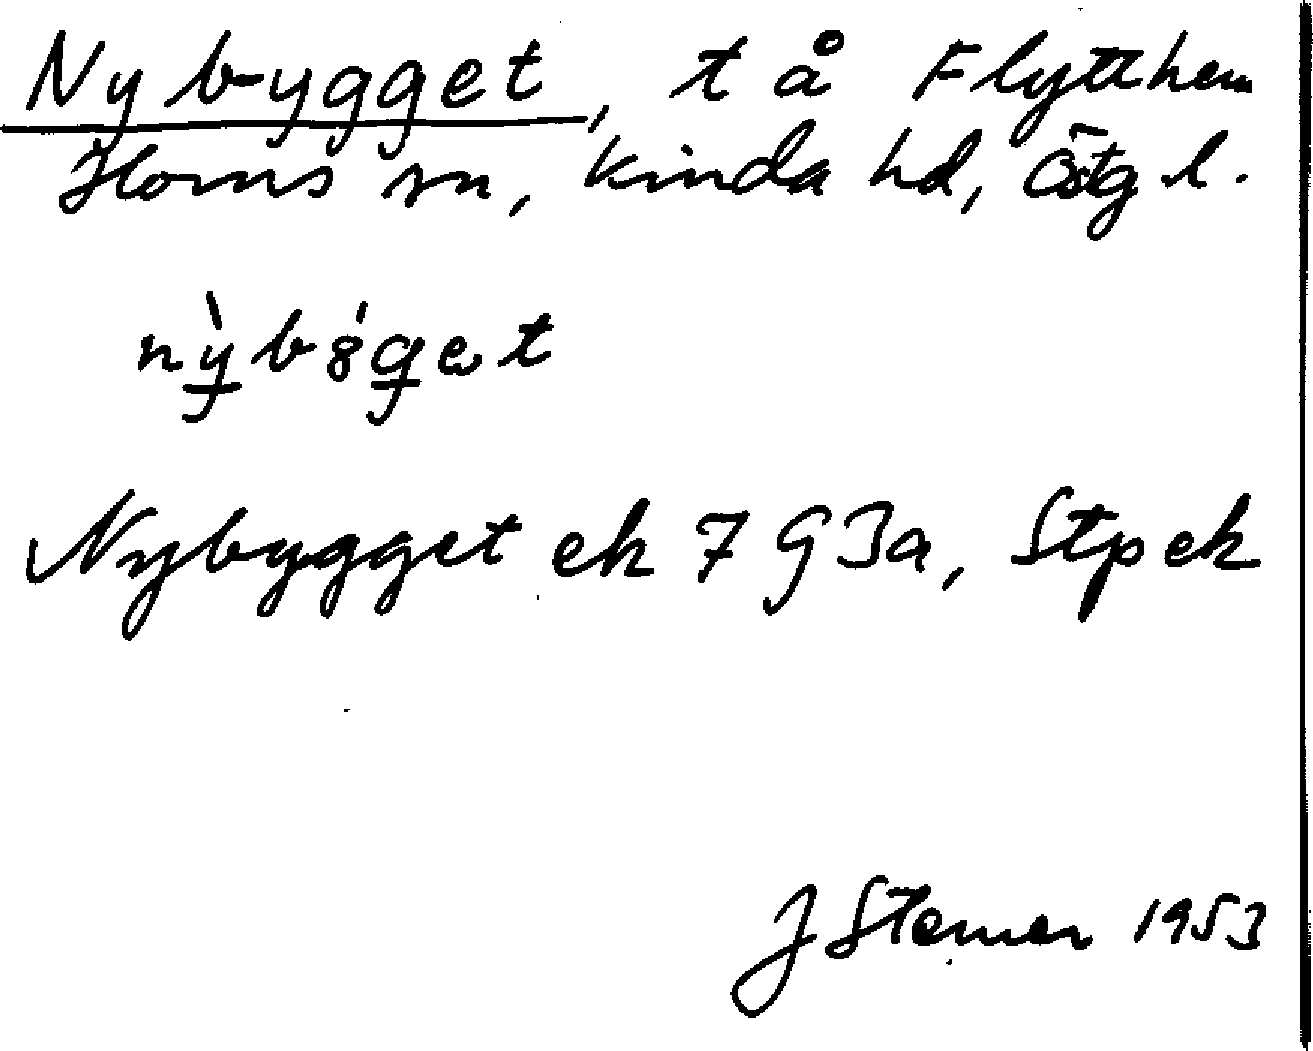 Nybygget, t å Flytthem
Horns sn, Kinda hd, Östg l.
nỳb8́get
Nybygget ek 7 G 3a, Stp ek
J Stemer 1953